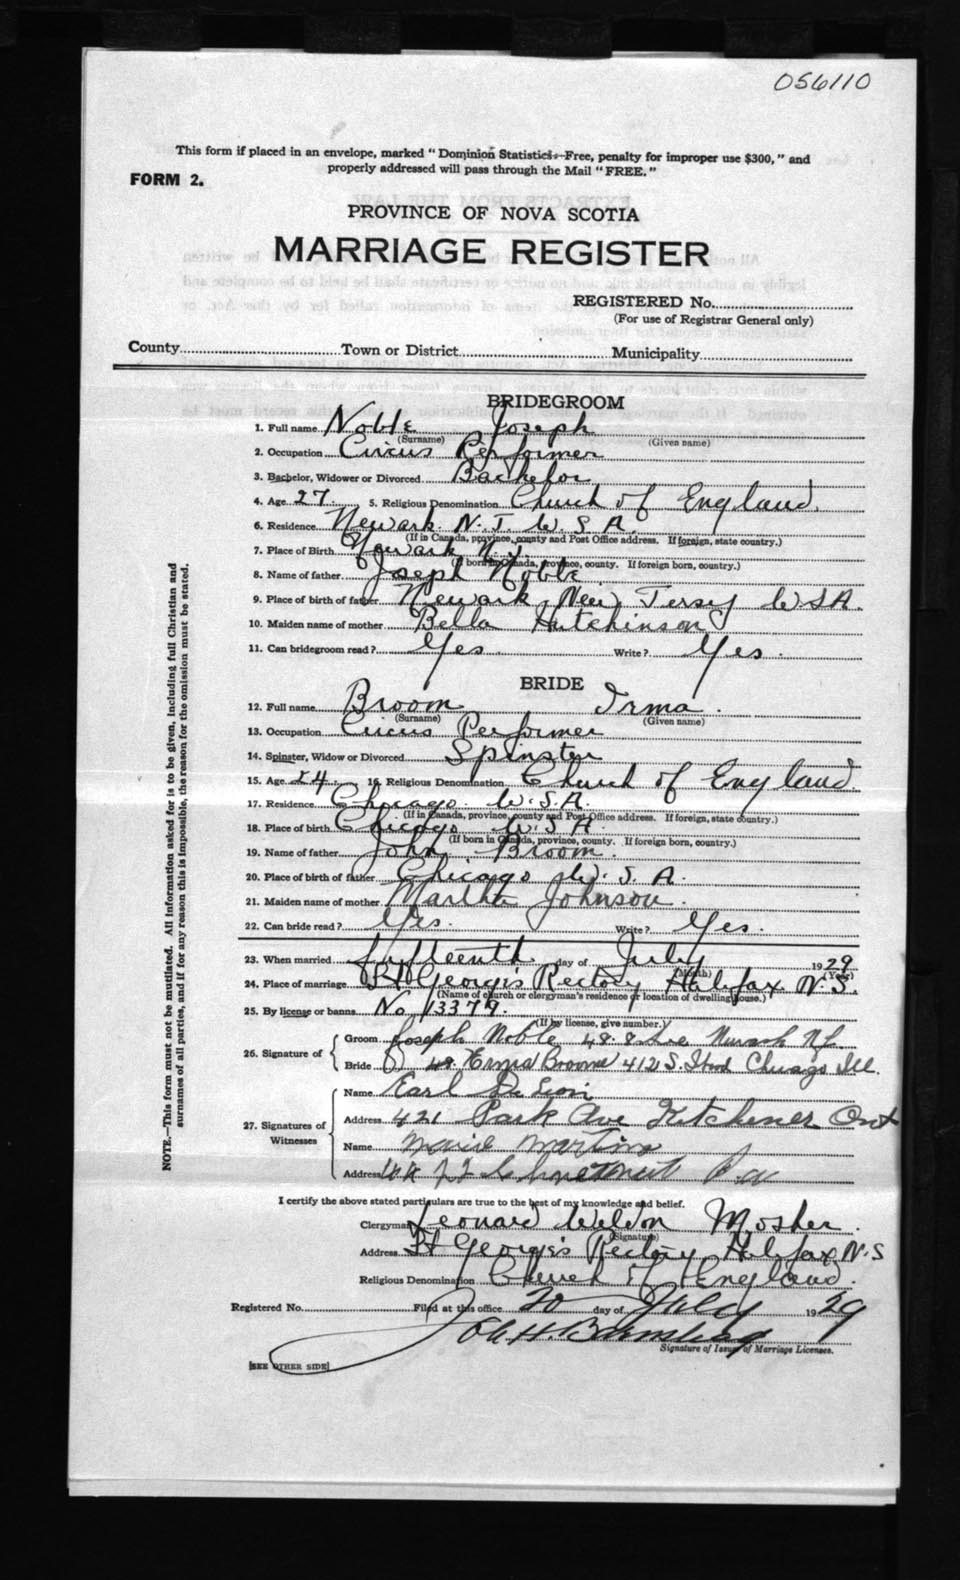 056110
This form if placed in an envelope, marked "Dominion Statistics—Free, penalty for improper use $300," and
properly addressed will pass through the Mail "FREE."
FORM 2.
PROVINCE OF NOVA SCOTIA
MARRIAGE REGISTER
REGISTERED No.
(For use of Registrar General only)
County Town or District Municipality
BRIDEGROOM
1. Full name Noble Joseph
(Surname) (Given name)
2. Occupation Circus Performer
3. Bachelor, Widower or Divorced Bachelor
4. Age 27 5. Religious Denomination Church of England
6. Residence Newark N.J. U.S.A.
(If in Canada, province, county and Post Office address. If foreign, state country.)
7. Place of Birth Newark N.J.
(If born in Canada, province, county. If foreign born, country.)
8. Name of father Joseph Noble
9. Place of birth of father Newark New Jersy U.S.A.
10. Maiden name of mother Bella Hutchinson
11. Can bridegroom read? Yes Write? Yes.
BRIDE
12. Full name Broom Irma.
(Surname) (Given name)
13. Occupation Circus Performer
14. Spinster, Widow or Divorced Spinster
15. Age 24. 16. Religious Denomination Church of England
17. Residence Chicago. U.S.A.
(If in Canada, province, county and Post Office address. If foreign, state country.)
18. Place of birth Chicago U.S.A.
(If born in Canada, province, county. If foreign born, country.)
19. Name of father John Broom.
20. Place of birth of father Chicago U.S.A.
21. Maiden name of mother Martha Johnson.
22. Can bride read? Yes. Write? Yes.
23. When married fifteenth day of July 1929
(Month) (Year)
24. Place of marriage St George's Rectory Halifax N.S.
(Name of church or clergyman's residence or location of dwelling house.)
25. By license or banns No 13379.
(If by license, give number.)
26. Signature of
Groom Joseph Noble 48. 8 Ave Newark N.J.
Bride Erma Broom 412 S. Chicago Ill.
27. Signatures of Witnesses
Name Earl De
Address 421 Park Ave Kitchener Ont
Name Marie Martin
Address
I certify the above stated particulars are true to the best of my knowledge and belief.
Clergyman Leonard Weldon Mosher.
(Signature)
Address St George's Rectory Halifax N.S
Religious Denomination Church of England.
Registered No. Filed at this office 20 day of July 1929
Signature of Issuer of Marriage Licenses.
[SEE OTHER SIDE]
NOTE.—This form must not be mutilated. All information asked for is to be given, including full Christian and
surnames of all parties, and if for any reason this is impossible, the reason for the omission must be stated.